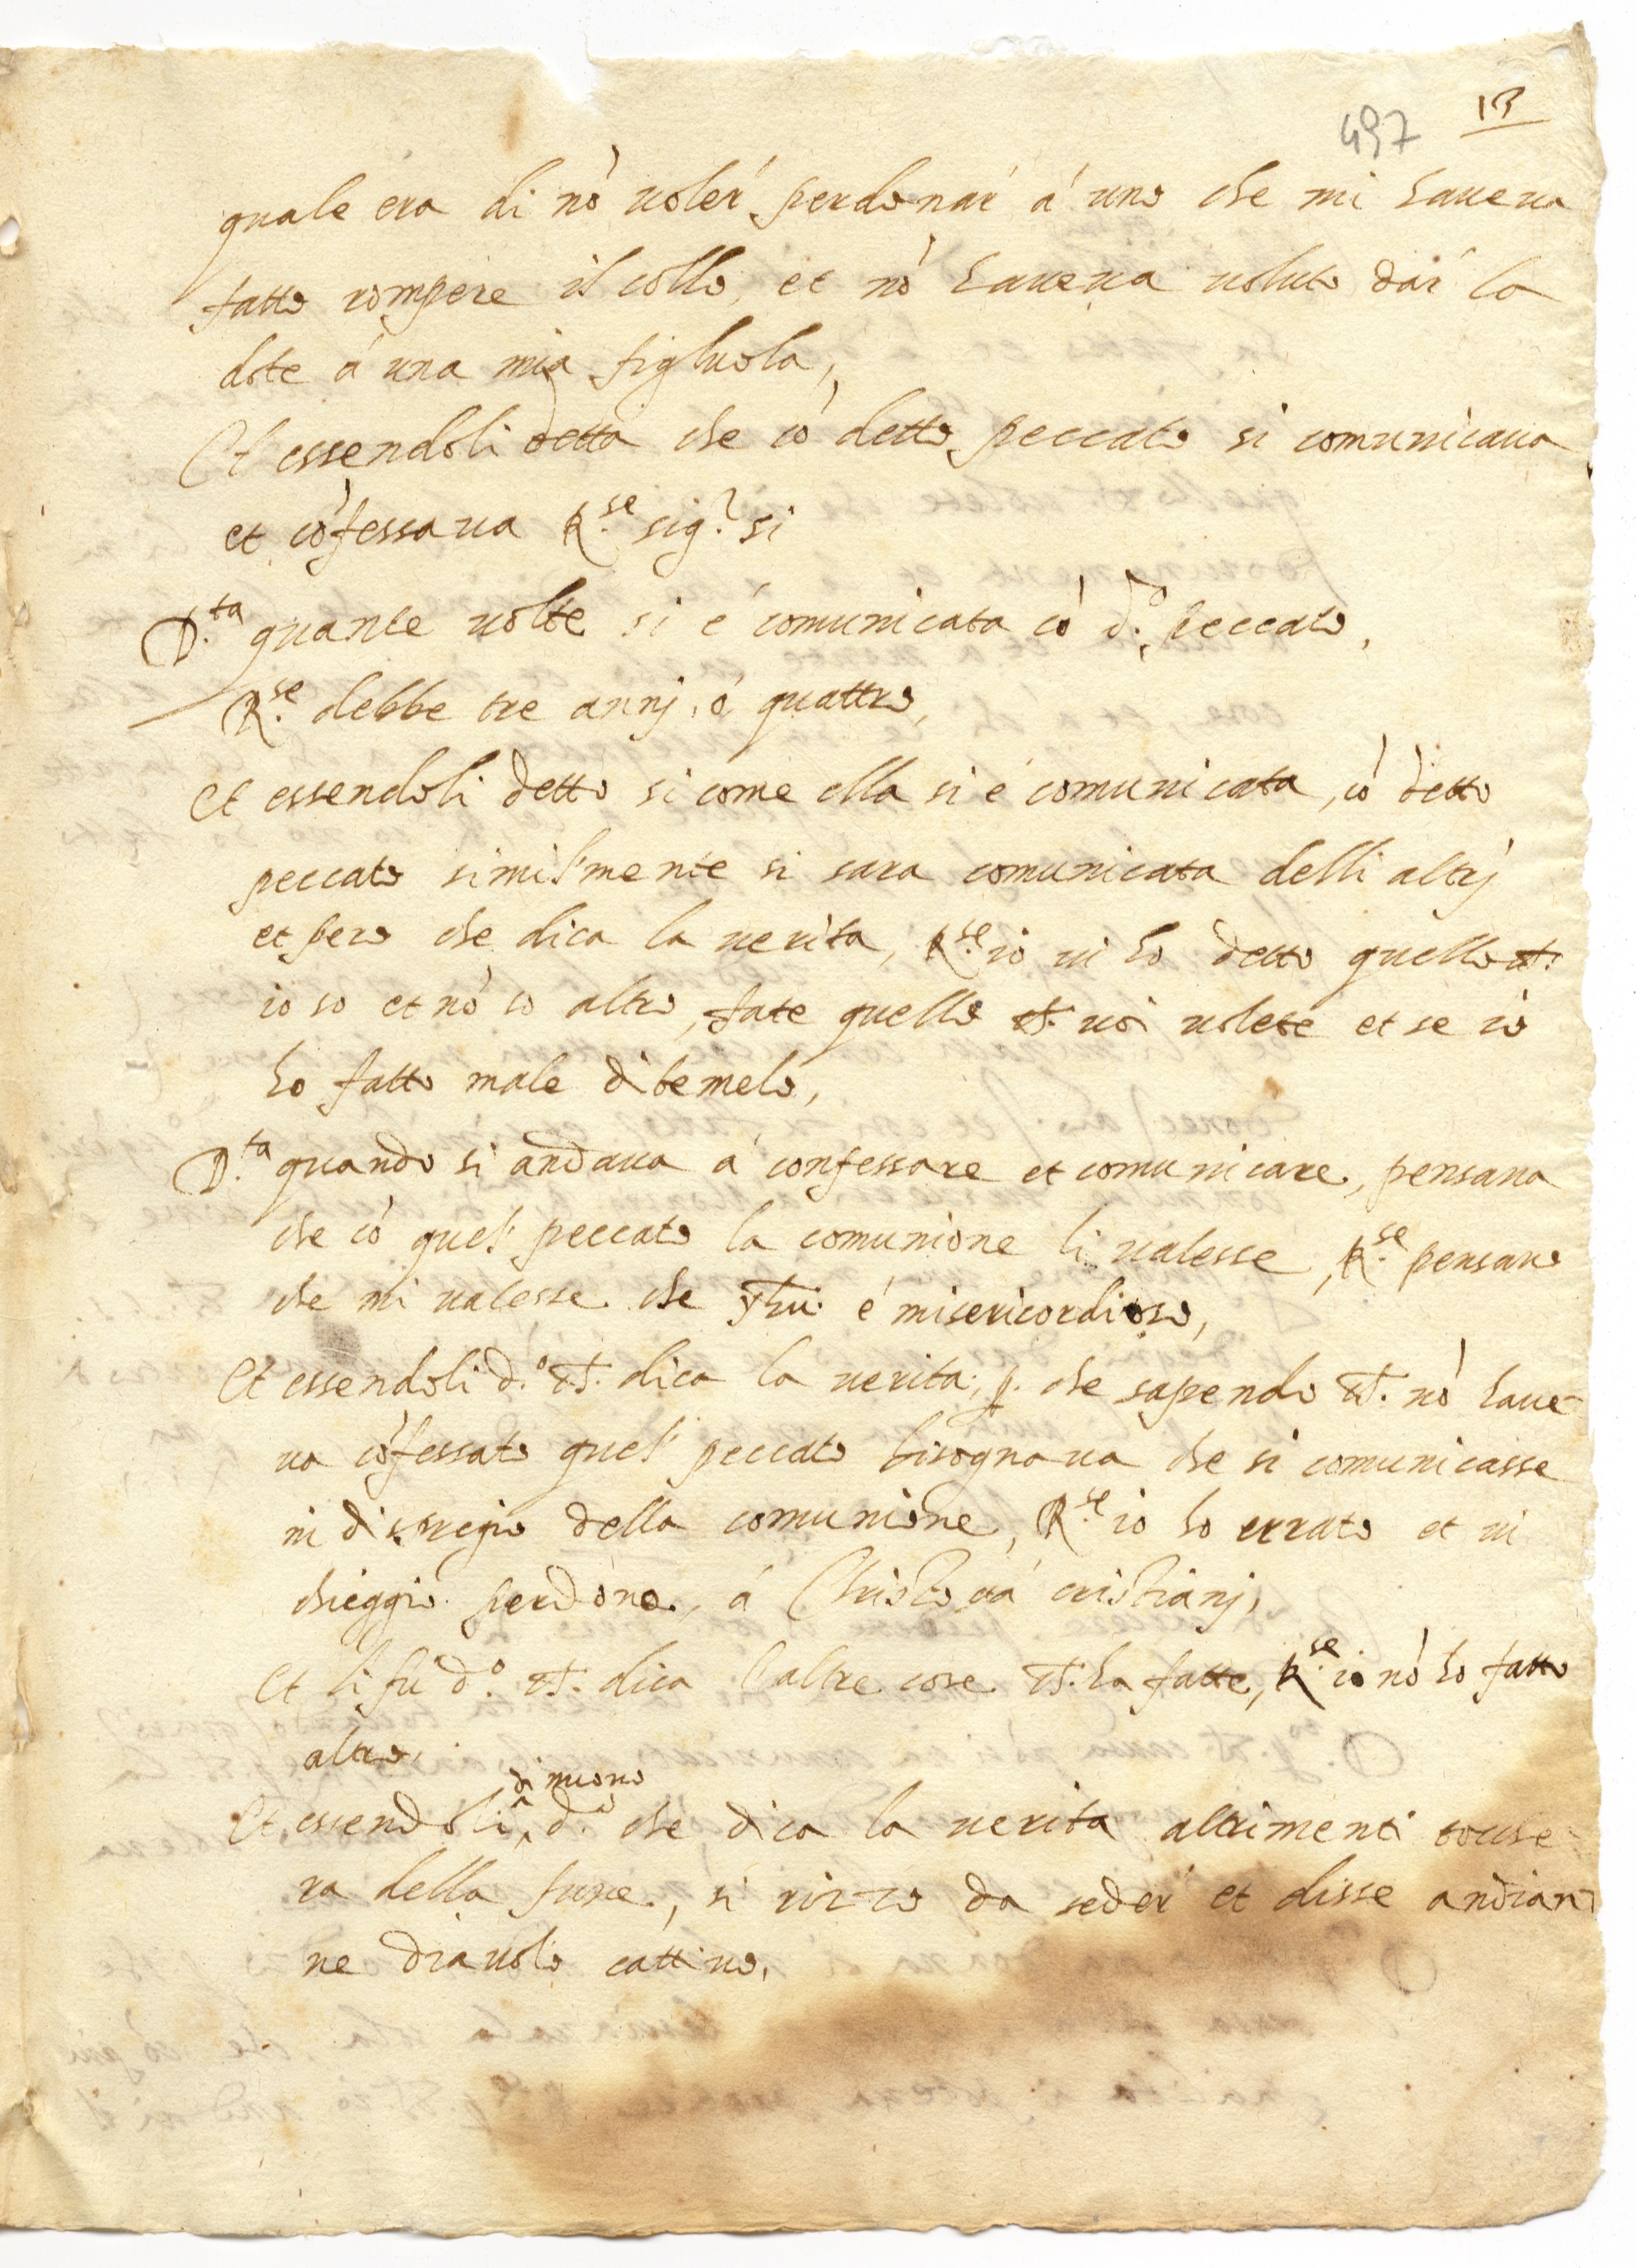 497 13
quale era di nō uoler perdonar á uno che mi haueua
fatto rompere il collo, et nō haueua uoluto dar la
dote á una mia figluola,
Et essendoli detto che cō detto peccato si comunicaua
et cōfessaua R.se sig.r si
D.ta quante uolte si é comunicata cō d.o peccato,
R.se debbe tre annj, ó quattro,
Et essendoli detto si come ella si é comunicata, cō detto
peccato simil'mente si sara comunicata delli altrj
et pero che dica la uerita, R.se io ui ho detto quello ch.
io so et nō so altro, fate quello ch. uoi uolete et se io
ho fatto male ditemelo,
D.ta quando si andaua á confessare et comunicare, pensaua
che cō quel' peccato la comunione li ualesse, R.se pensauo
che mi ualesse che yhu. é misericordioso,
Et essendoli d.o ch. dica la uerita, p. che sapendo ch. nō haue-
ua cōfessato quel' peccato bisognaua che si comunicasse
in dispregio della comunione, R.se io ho errato et ui
chieggio perdono, á Christo et á cristianj,
Et li fu d.o ch. dica l'altre cose ch. ha fatte, R.se io nō ho fatto
altro,
di nuouo
Et essendoli d.o che dica la uerita altrimenti tocche-
ra della fune, si rizzo da seder et disse andian-
ne diauolo cattiuo,